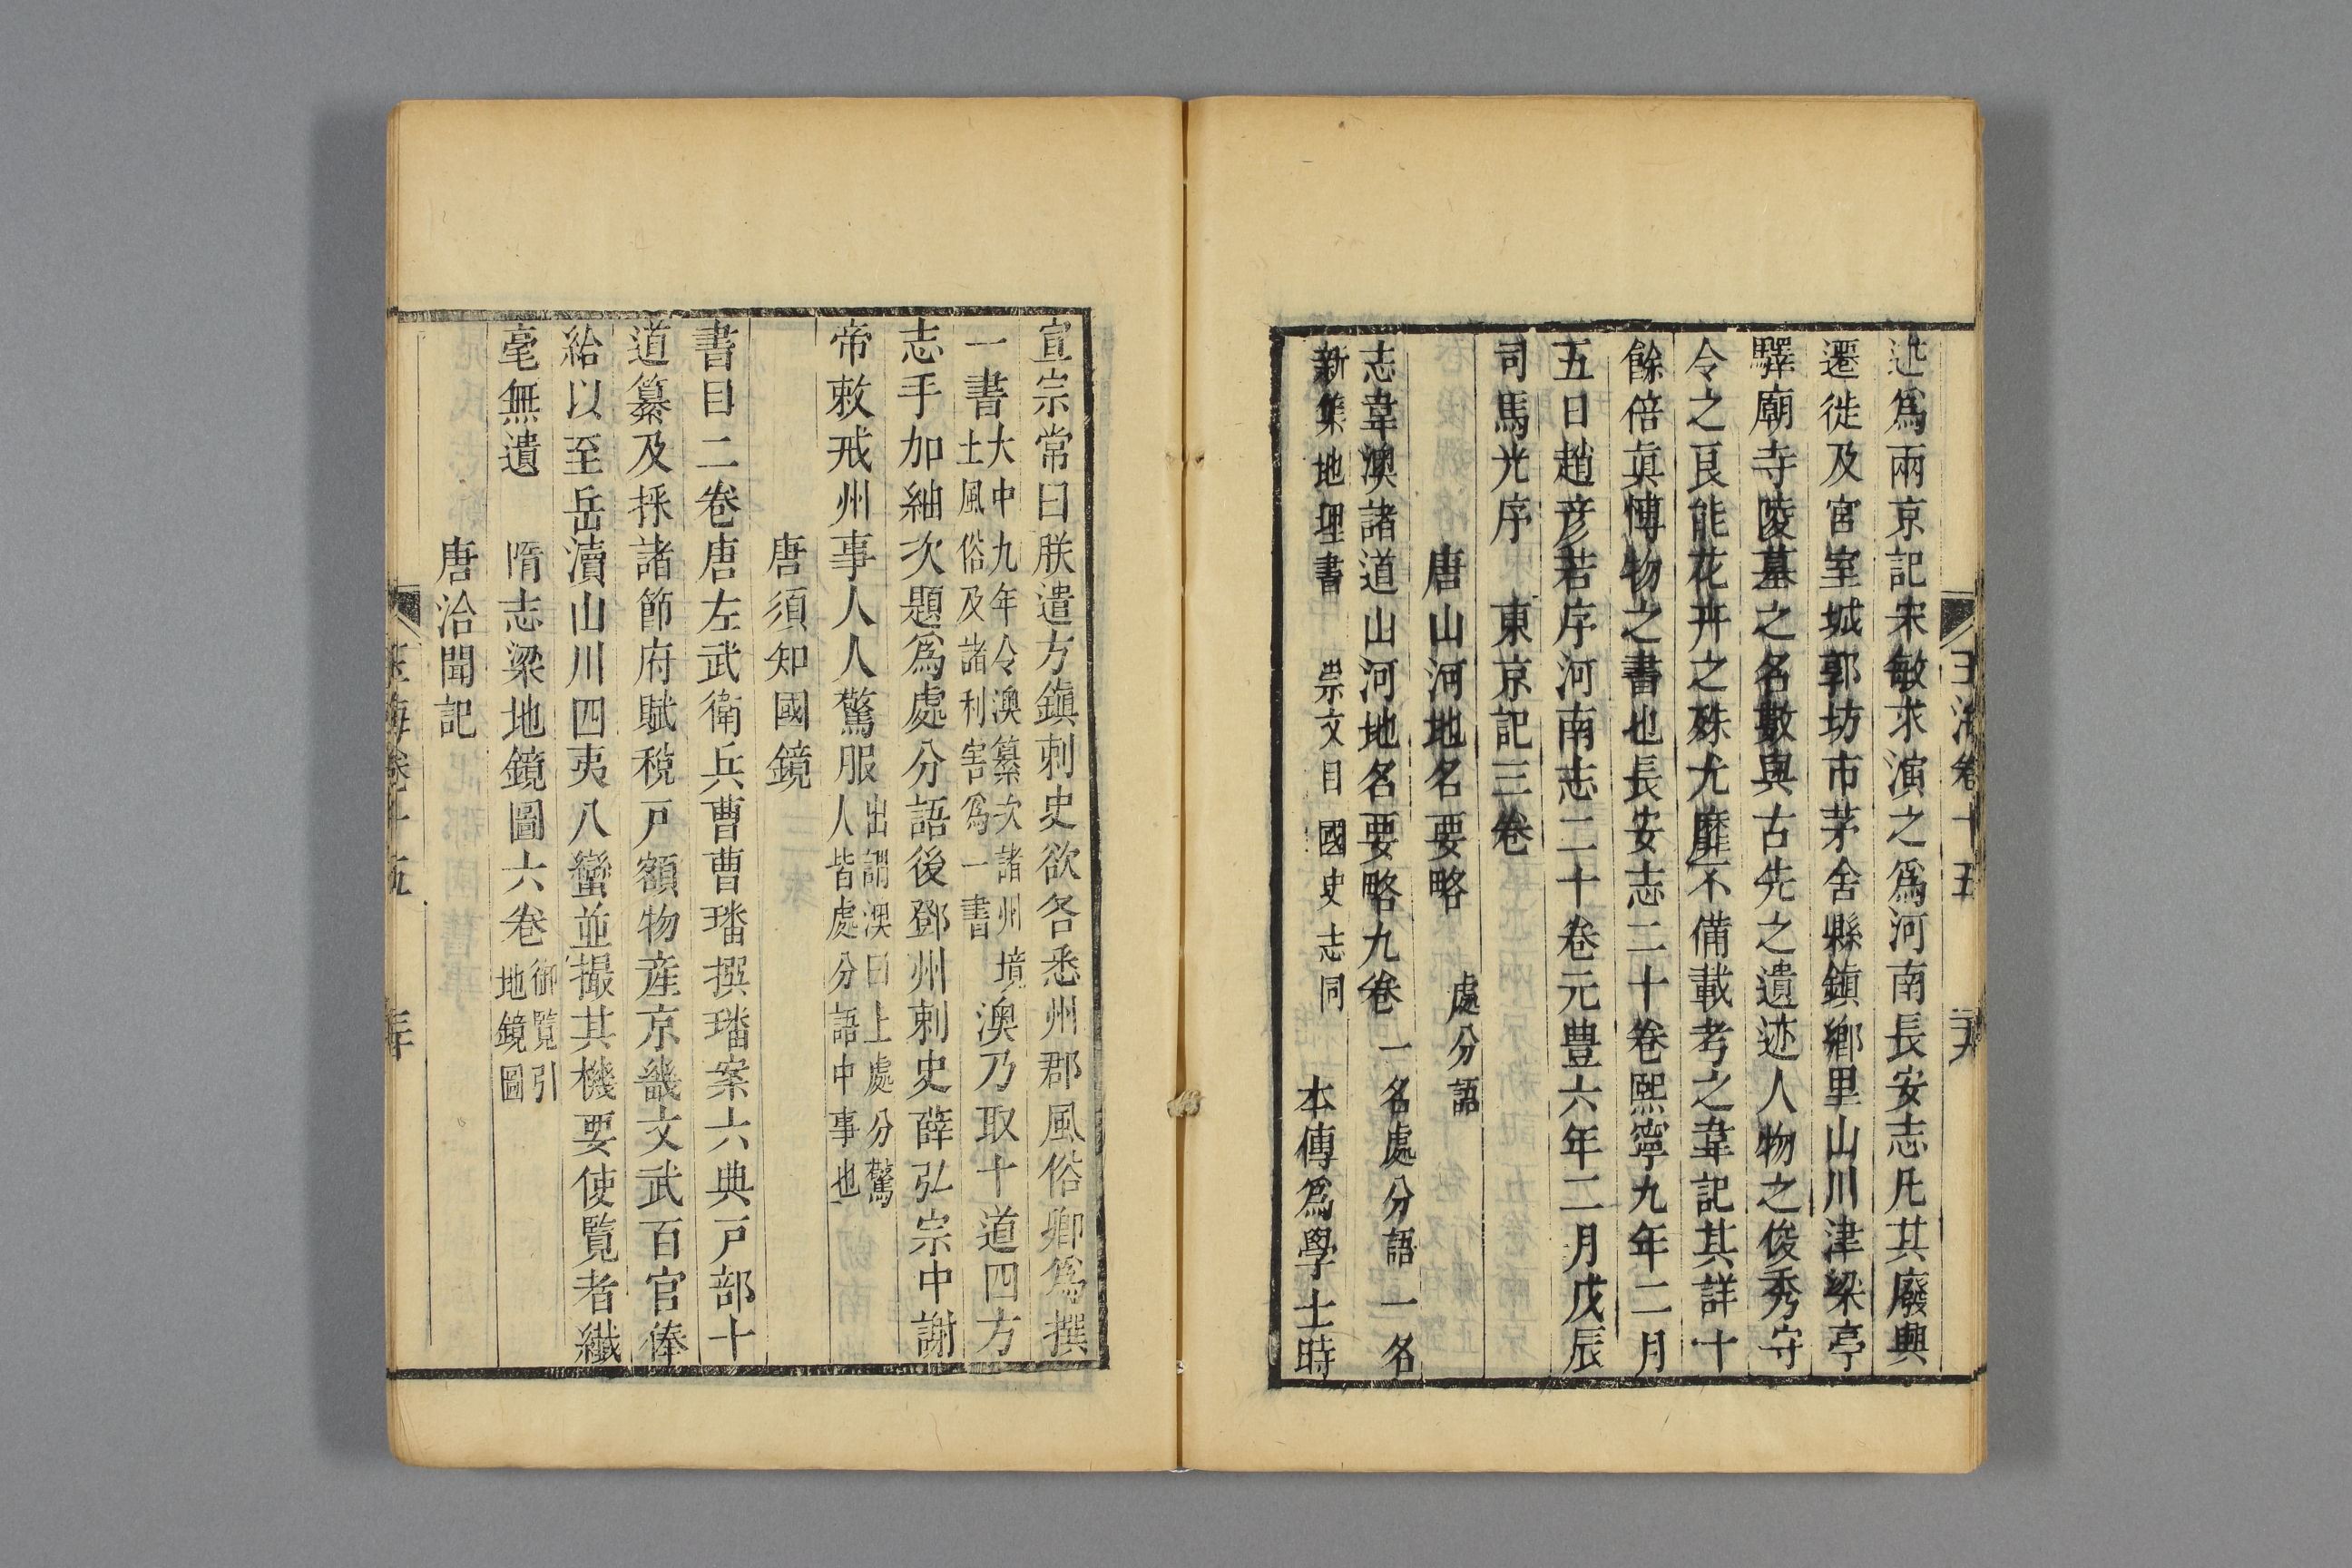 玉海卷十五
述爲兩京記宋敏求演之爲河南長安志凡其廢興
遷徙及宮室城郭坊市茅舍縣鎮鄉里山川津梁亭
驛廟寺陵墓之名數與古先之遺迹人物之俊秀守
令之良能花卉之殊尤靡不備載考之韋記其詳十
餘倍眞愽物之書也長安志二十卷熙寧九年二月
五日趙彥若序河南志二十卷元豊六年二月戊辰
司馬光序　東京記三卷
唐山河地名要略　處分語
志韋澳諸道山河地名要略九卷　一名處分語　一名
新集地理書　崇文目國史志同　本傳爲學士時
宣宗常曰朕遣方鎮刺史欲各悉州郡風俗卿爲撰
一書大中九年令澳纂次諸州境
土風俗及諸利害爲一書　澳乃取十道四方
志手加紬次題爲處分語後鄧州刺史薛弘宗中謝
帝敕戒州事人人驚服出謂澳曰上處分驚
人皆處分語中事也
唐須知國鏡
書目二卷唐左武衛兵曹曹璠撰璠案六典戸部十
道纂及採諸節府賦稅戸額物產京畿文武百官俸
給以至岳瀆山川四夷八蠻並撮其機要使覽者纎
毫無遺　隋志梁地鏡圖六卷御覽引
地鏡圖
唐洽聞記
玉海卷十五